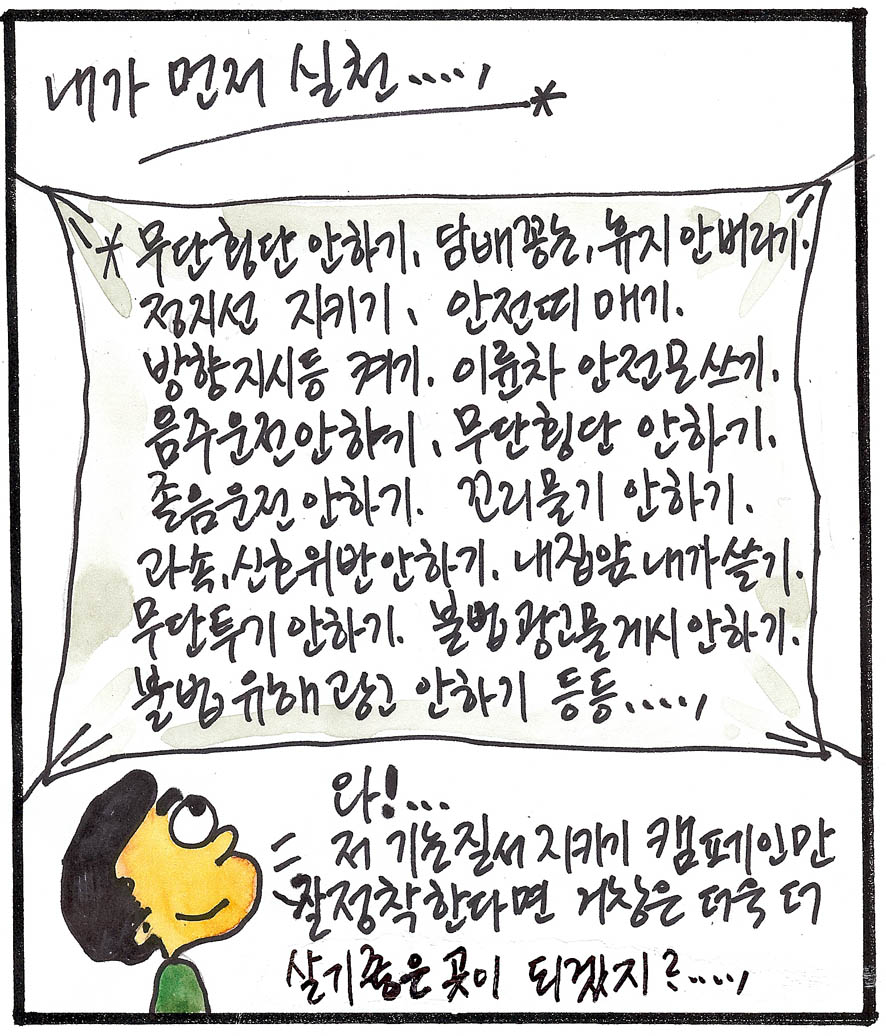 내가 먼저 실천.....,
* 무단횡단 안하기. 담배꽁초, 휴지 안버리기.
정지선 지키기, 안전띠 매기.
방향지시등 켜기. 이륜차 안전모쓰기.
음주운전안하기, 무단횡단 안하기.
졸음운전안하기. 꼬리물기 안하기.
과속,신호위반안하기. 내집앞 내가쓸기.
무단투기 안하기. 불법광고물게시안하기.
불법유해광고 안하기 등등.....,
와!...
저 기초질서 지키기 캠페인만
잘정착한다면 거창은 더욱 더
살기좋은 곳이 되겠지?.....,